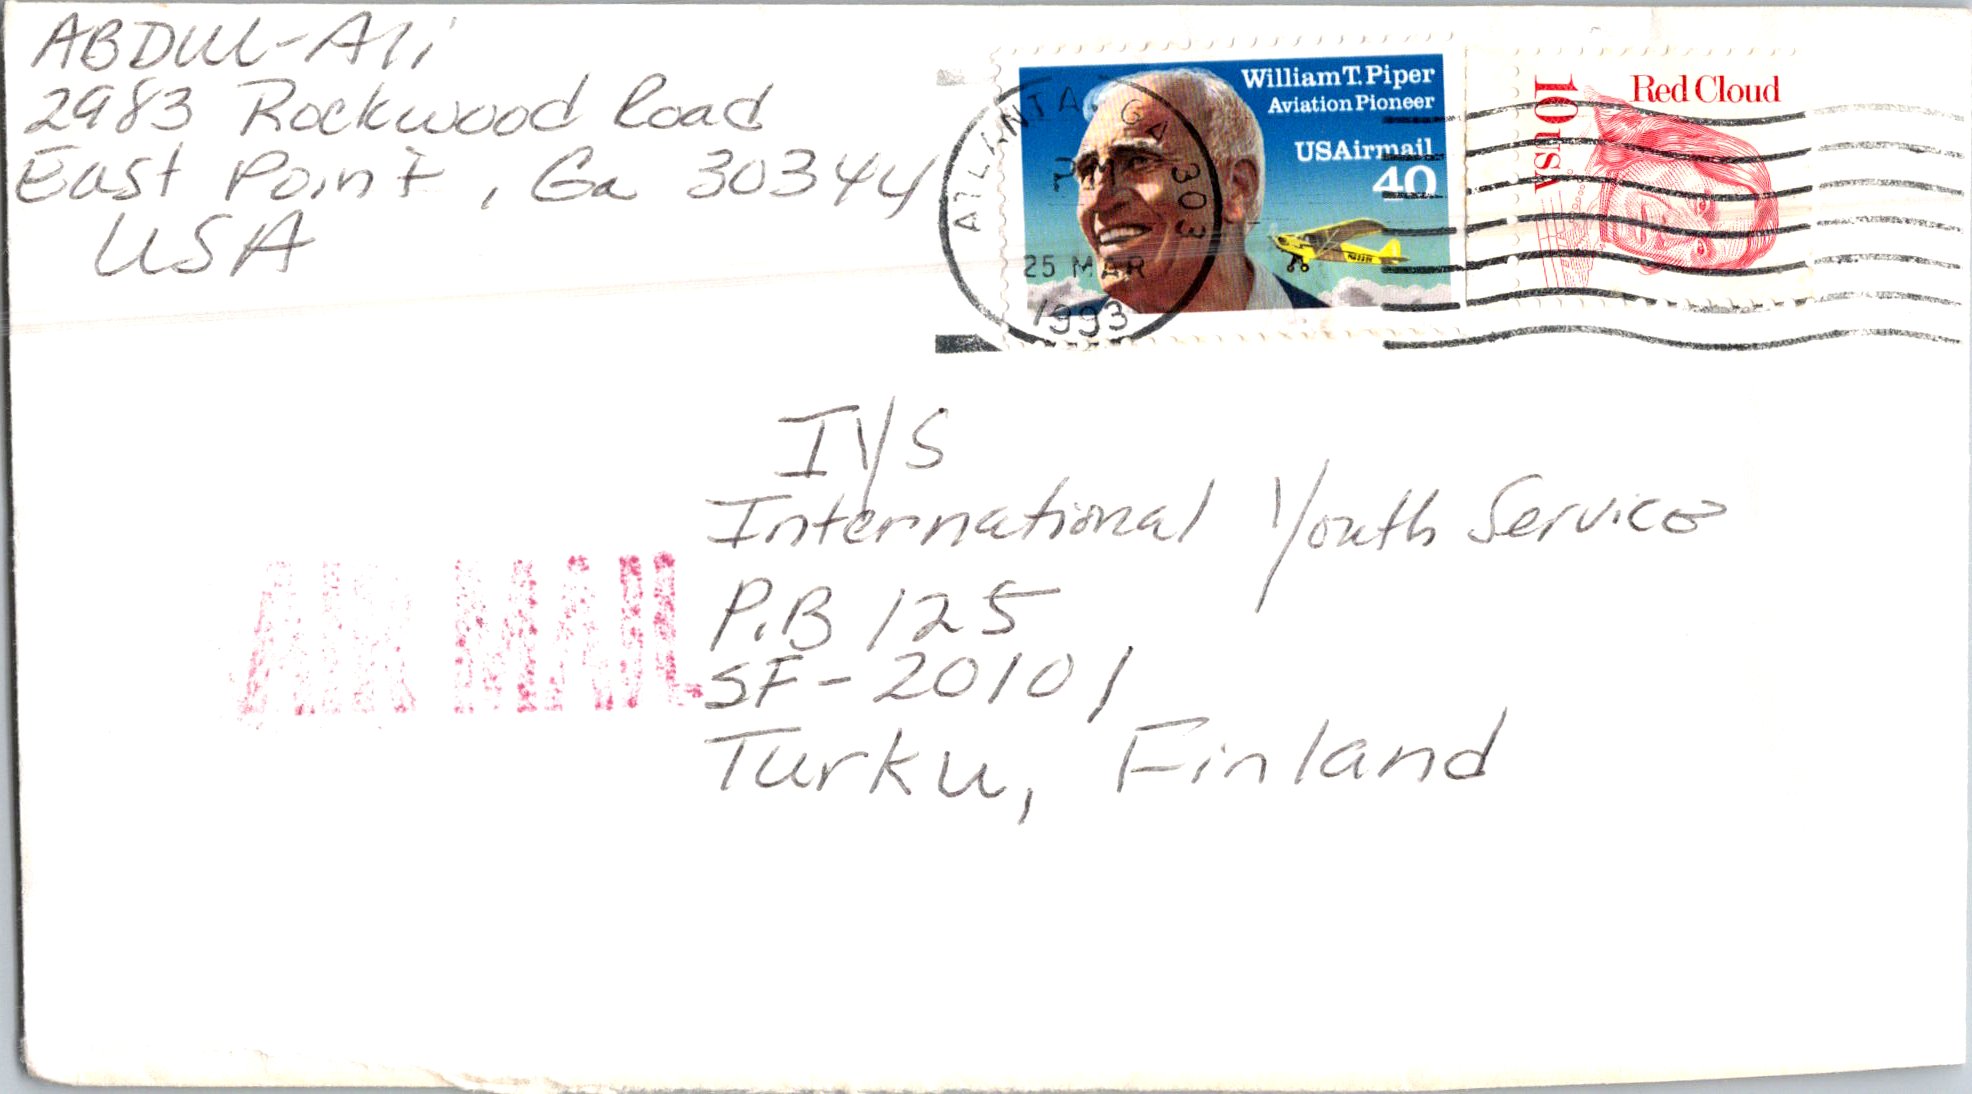 ABDUL-Ali
2983 Rockwood Road
East Point, Ga 30344
USA
William T. Piper
Aviation Pioneer
USAirmail
40
Red Cloud
10 USA
ATLANTA, GA 303
PM
25 MAR
1993
IYS
International Youth Service
P.B 125
SF-20101
Turku, Finland
AIR MAIL